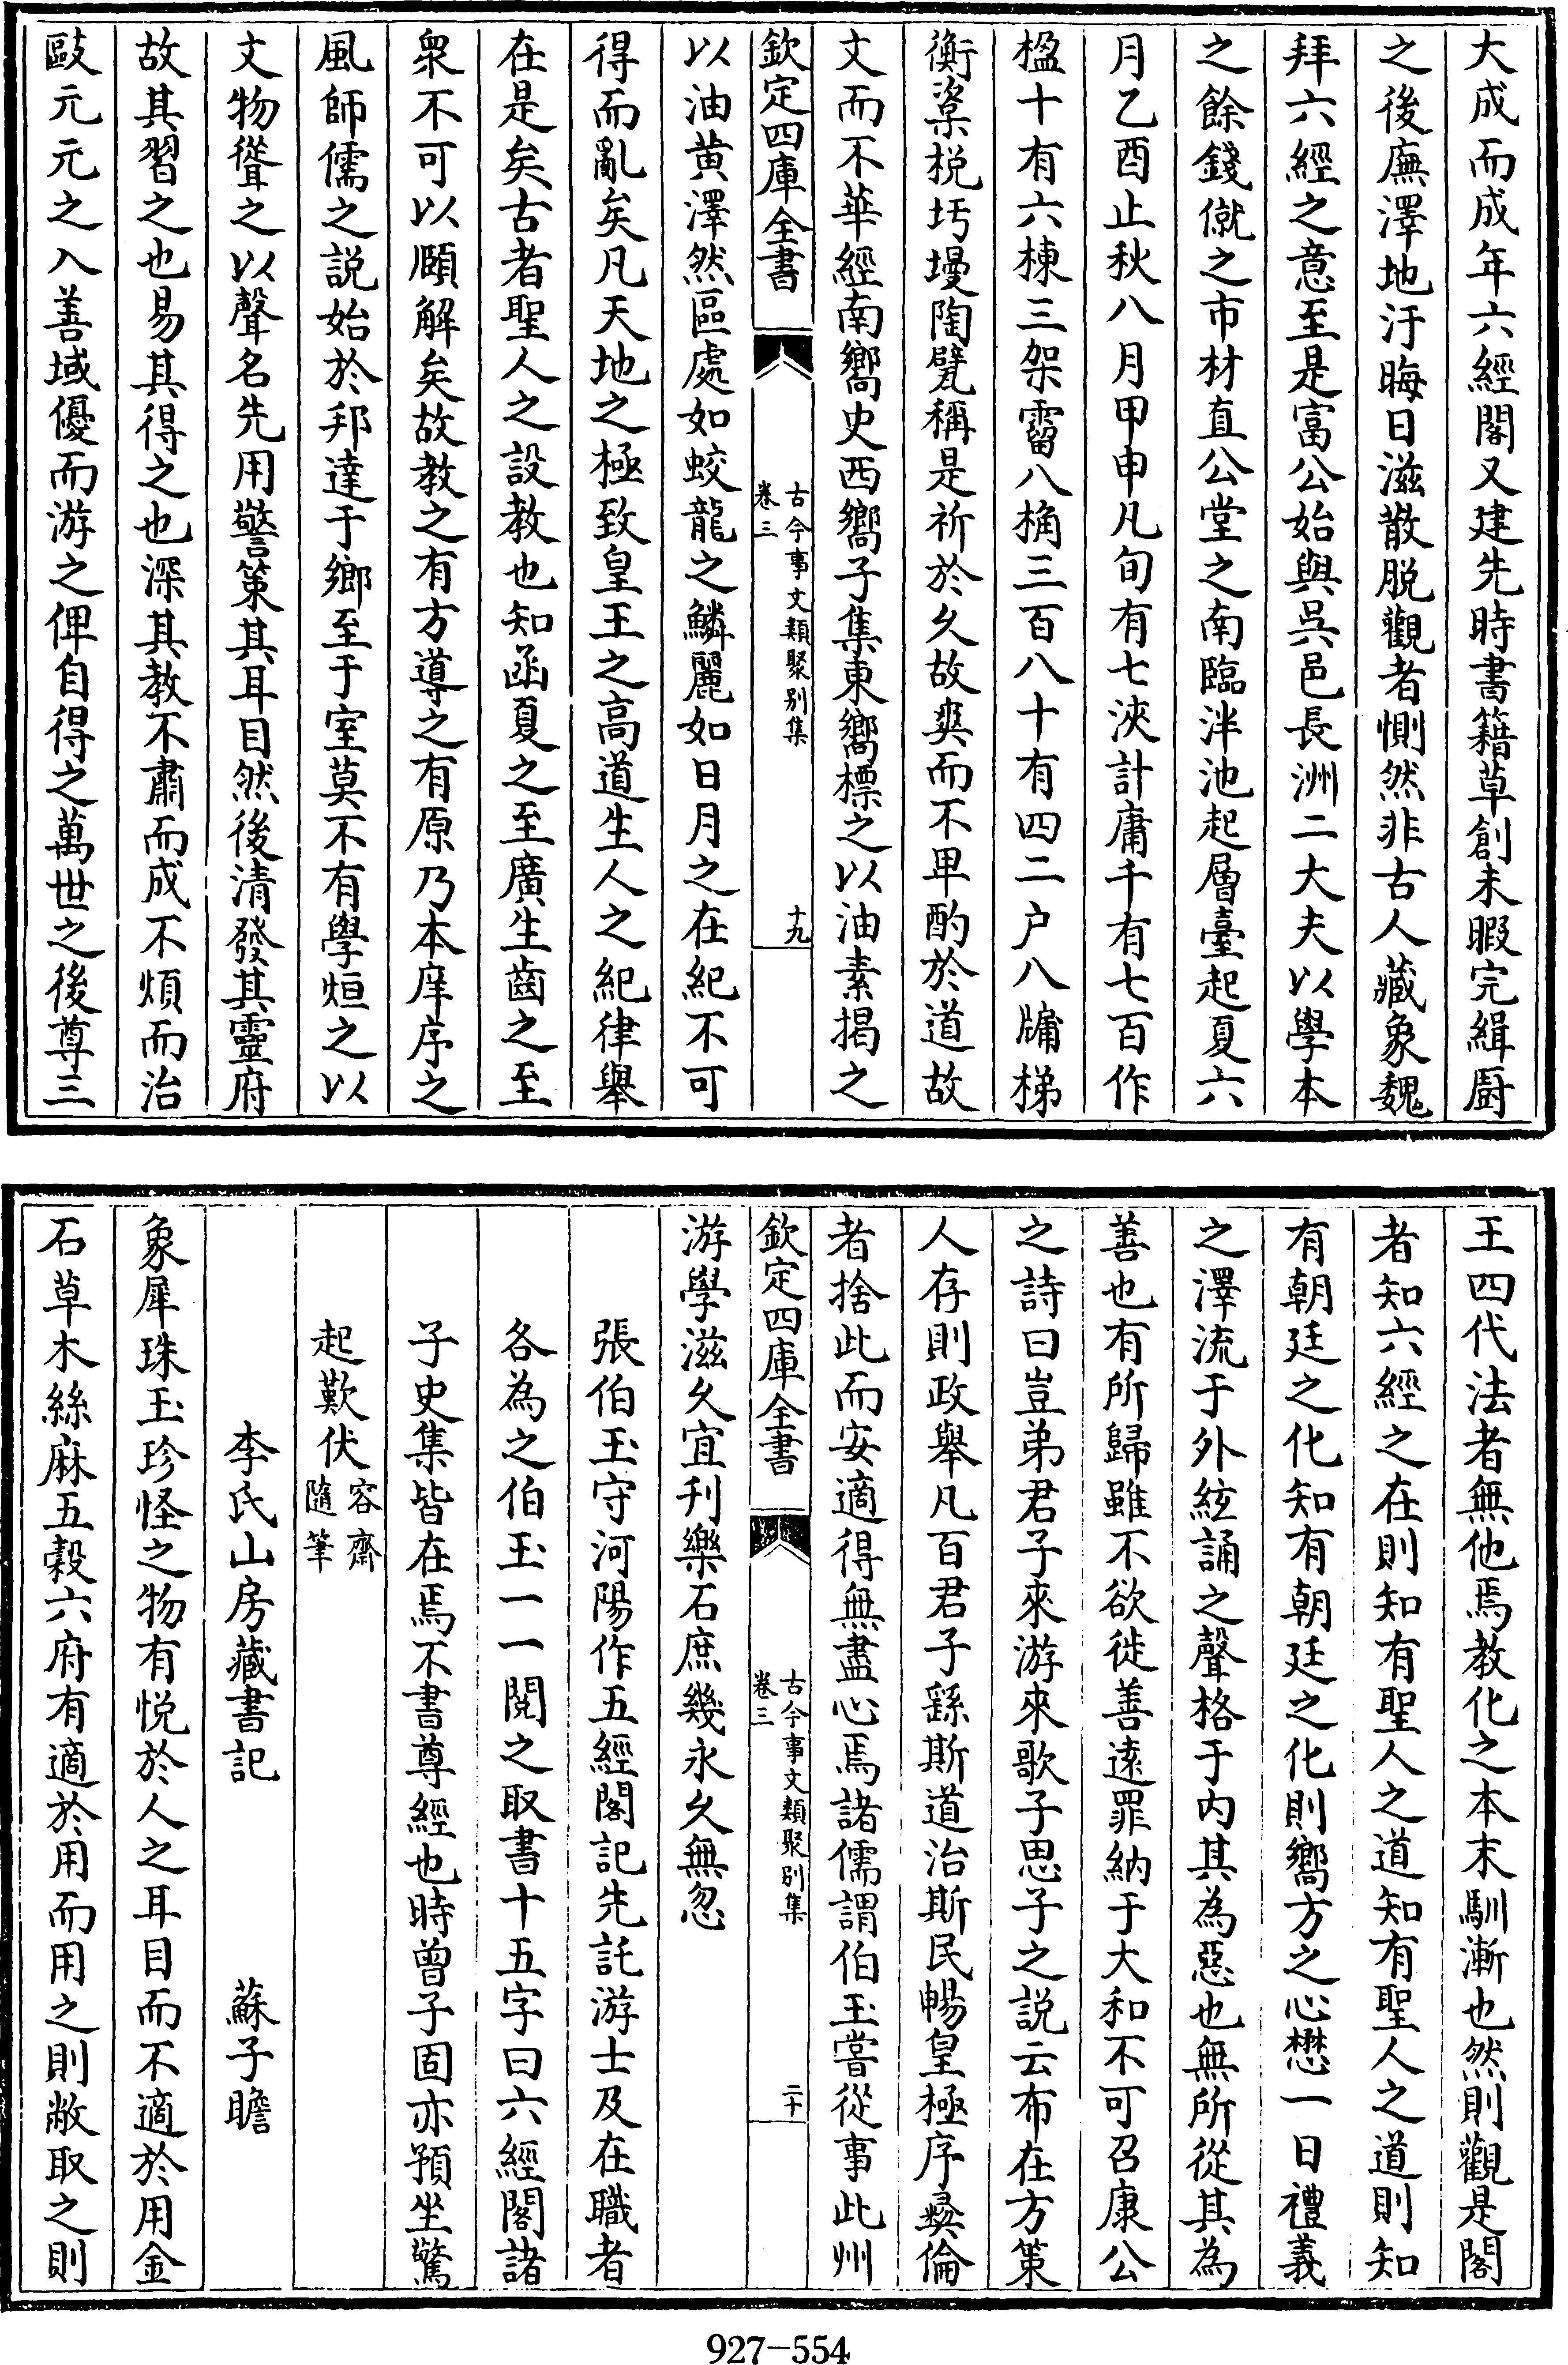 大成而成年六經閣又建先時書籍草創未暇完緝廚
之後廡澤地汙晦日滋散脱觀者惻然非古人藏象魏
拜六經之意至是富公始與吳邑長洲二大夫以學本
之餘錢僦之市材直公堂之南臨泮池起層臺起夏六
月乙酉止秋八月甲申凡旬有七浹計庸千有七百作
楹十有六棟三架霤八桷三百八十有四二户八牖梯
衡楶梲圬墁陶甓稱是祈於久故爽而不卑酌於道故
文而不華經南嚮史西嚮子集東嚮標之以油素揭之
欽定四庫全書
古今事文類聚别集
卷三
十九
以油黄澤然區處如蛟龍之鱗麗如日月之在紀不可
得而亂矣凡天地之極致皇王之高道生人之紀律舉
在是矣古者聖人之設教也知函夏之至廣生齒之至
衆不可以頤解矣故教之有方導之有原乃本庠序之
風師儒之説始於邦達于鄉至于室莫不有學烜之以
文物聳之以聲名先用警策其耳目然後清發其靈府
故其習之也易其得之也深其教不肅而成不煩而治
敺元元之入善域優而游之俾自得之萬世之後尊三
王四代法者無他焉教化之本末馴漸也然則觀是閣
者知六經之在則知有聖人之道知有聖人之道則知
有朝廷之化知有朝廷之化則嚮方之心懋一日禮義
之澤流于外絃誦之聲格于内其為惡也無所從其為
善也有所歸雖不欲徙善遠罪納于大和不可召康公
之詩曰豈弟君子來游來歌子思子之説云布在方策
人存則政舉凡百君子繇斯道治斯民暢皇極序彝倫
者捨此而安適得無盡心焉諸儒謂伯玉嘗從事此州
欽定四庫全書
古今事文類聚别集
卷三
二十
游學滋久宜刋樂石庶幾永久無忽
張伯玉守河陽作五經閣記先託游士及在職者
各為之伯玉一一閲之取書十五字曰六經閣諸
子史集皆在焉不書尊經也時曾子固亦預坐驚
起歎伏容齋隨筆
李氏山房藏書記　蘇子瞻
象犀珠玉珍怪之物有悦於人之耳目而不適於用金
石草木絲麻五穀六府有適於用而用之則敝取之則
927-554